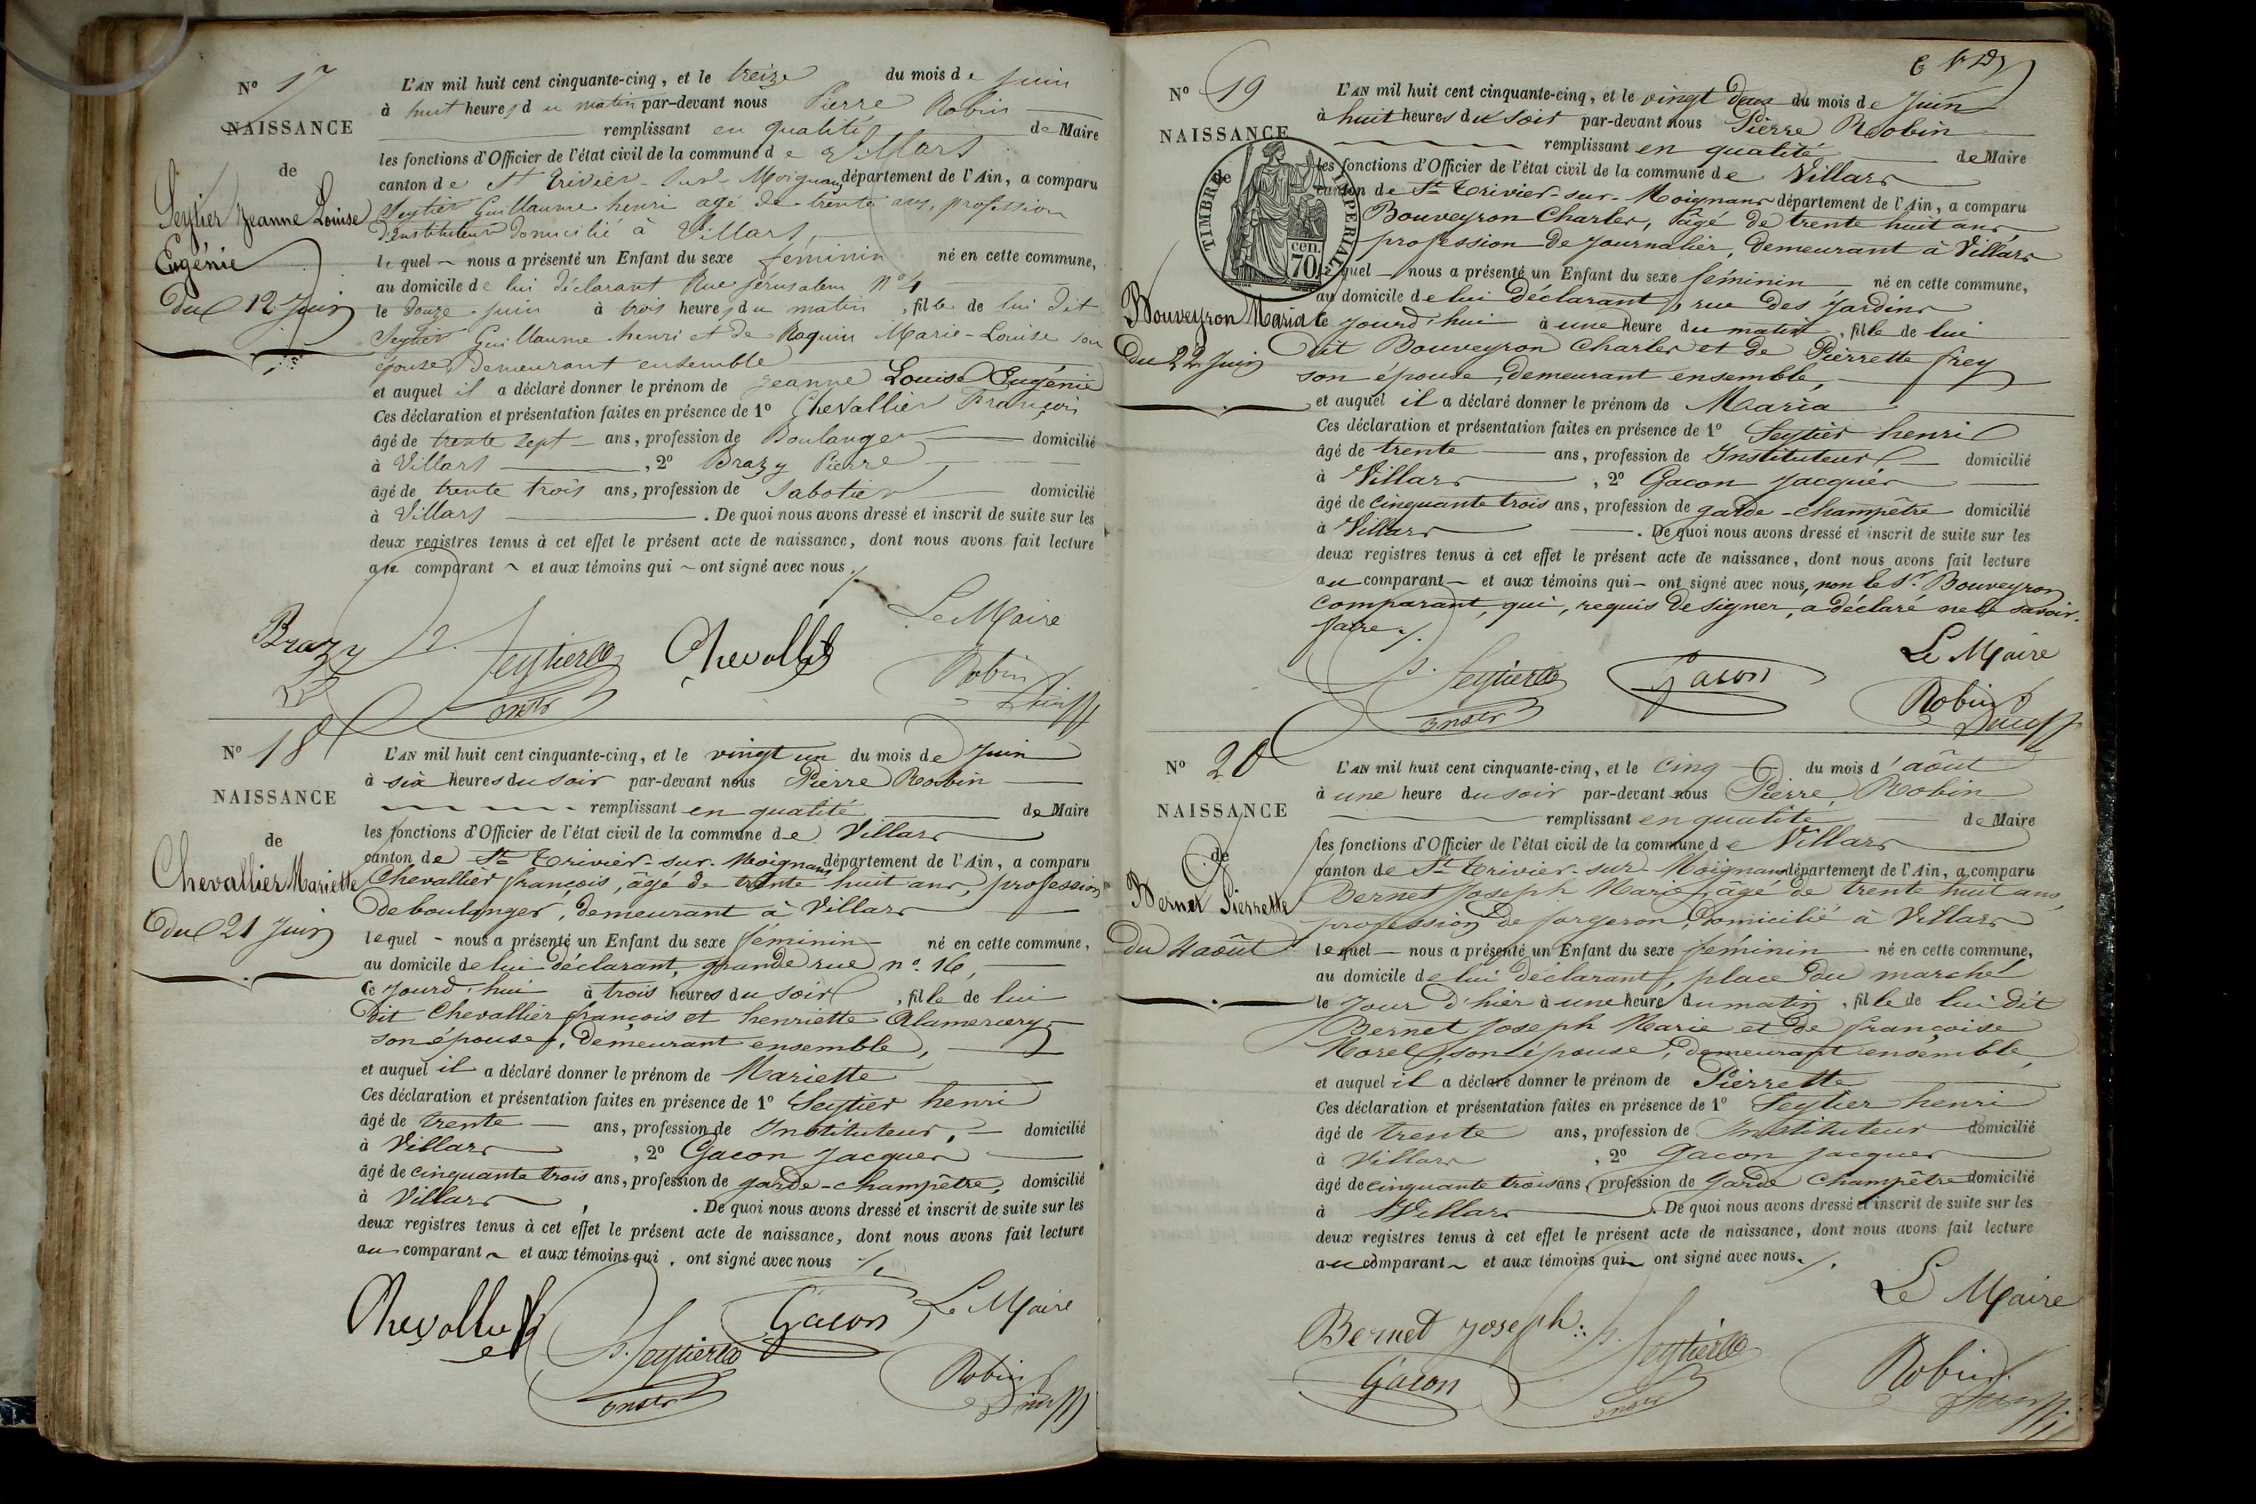 N° 17
NAISSANCE
de
Seytier Jeanne Louise
Eugénie
du 12 Juin
L'AN mil huit cent cinquante-cinq, et le treize du mois de Juin
à huit heures du matin par-devant nous Pierre Robin
remplissant en qualité de Maire
les fonctions d'Officier de l'état civil de la commune de Villars
canton de St Trivier-sur-Moignans département de l'Ain, a comparu
Seytier Guillaume henri agé de trente ans, profession
d'instituteur domicilié à Villars
lequel nous a présenté un Enfant du sexe féminin né en cette commune,
au domicile de lui déclarant Rue Jérusalem N° 4
le douze juin à trois heures du matin, fille de lui dit
Seytier Guillaume henri et de Roquin Marie-Louise son
épouse demeurant ensemble
et auquel il a déclaré donner le prénom de Jeanne Louise Eugénie
Ces déclaration et présentation faites en présence de 1° Chevallier François
âgé de trente sept ans, profession de Boulanger domicilié
à Villars, 2° Brazy Pierre
âgé de trente trois ans, profession de Sabotier domicilié
à Villars. De quoi nous avons dressé et inscrit de suite sur les
deux registres tenus à cet effet le présent acte de naissance, dont nous avons fait lecture
au comparant et aux témoins qui ont signé avec nous ./.
Le Maire
Brazy Seytier Chevallier
Robin
instr
N° 18
NAISSANCE
de
Chevallier Mariette
du 21 Juin
L'AN mil huit cent cinquante-cinq, et le vingt un du mois de Juin
à six heures du soir par-devant nous Pierre Robin
remplissant en qualité de Maire
les fonctions d'Officier de l'état civil de la commune de Villars
canton de St Trivier-sur-Moignans département de l'Ain, a comparu
Chevallier françois, âgé de trente huit ans, profession
de boulanger, demeurant à Villars
lequel - nous a présenté un Enfant du sexe féminin né en cette commune,
au domicile de lui déclarant, grande rue n° 16,
ce jourd'hui à trois heures du soir, fille de lui
dit Chevallier françois et henriette Alamercery
son épouse, demeurant ensemble,
et auquel il a déclaré donner le prénom de Mariette
Ces déclaration et présentation faites en présence de 1° Seytier henri
âgé de trente ans, profession de Instituteur, domicilié
à Villars, 2° Gacon Jacques
âgé de cinquante trois ans, profession de garde-champêtre, domicilié
à Villars. De quoi nous avons dressé et inscrit de suite sur les
deux registres tenus à cet effet le présent acte de naissance, dont nous avons fait lecture
au comparant et aux témoins qui, ont signé avec nous ./.
Chevallier Seytier Gacon Le Maire
Robin
instr
N° 19
NAISSANCE
de
TIMBRE IMPERIAL
70 cen.
Bouveyron Maria
du 22 Juin
L'AN mil huit cent cinquante-cinq, et le vingt deux du mois de Juin
à huit heures du soir par-devant nous Pierre Robin
remplissant en qualité de Maire
les fonctions d'Officier de l'état civil de la commune de Villars
canton de St Trivier-sur-Moignans département de l'Ain, a comparu
Bouveyron Charles, âgé de trente huit ans,
profession de Journalier, demeurant à Villars
lequel nous a présenté un Enfant du sexe féminin né en cette commune,
au domicile de lui déclarant, rue des Jardins
ce jourd'hui à une heure du matin, fille de lui
dit Bouveyron Charles et de Pierrette frey
son épouse, demeurant ensemble,
et auquel il a déclaré donner le prénom de Maria
Ces déclaration et présentation faites en présence de 1° Seytier henri
âgé de trente ans, profession de Instituteur domicilié
à Villars, 2° Gacon Jacques
âgé de cinquante trois ans, profession de garde-champêtre domicilié
à Villars. De quoi nous avons dressé et inscrit de suite sur les
deux registres tenus à cet effet le présent acte de naissance, dont nous avons fait lecture
au comparant et aux témoins qui ont signé avec nous, non le Sr. Bouveyron
comparant, qui, requis de signer, a déclaré ne le savoir
faire ./.
Le Maire
Seytier Gacon
Robin
instr
N° 20
NAISSANCE
de
Bernet Pierrette
du 4 août
L'AN mil huit cent cinquante-cinq, et le cinq du mois d'août
à une heure du soir par-devant nous Pierre Robin
remplissant en qualité de Maire
les fonctions d'Officier de l'état civil de la commune de Villars
canton de St Trivier-sur-Moignans département de l'Ain, a comparu
Bernet Joseph Marie, âgé de trente huit ans,
profession de forgeron, domicilié à Villars
lequel nous a présenté un Enfant du sexe féminin né en cette commune,
au domicile de lui déclarant, place du marché
le jour d'hier à une heure du matin, fille de lui dit
Bernet Joseph Marie et de françoise
Morel, son épouse, demeurant ensemble,
et auquel il a déclaré donner le prénom de Pierrette
Ces déclaration et présentation faites en présence de 1° Seytier henri
âgé de trente ans, profession de Instituteur domicilié
à Villars, 2° Gacon Jacques
âgé de cinquante trois ans, profession de Garde Champêtre domicilié
à Villars. De quoi nous avons dressé et inscrit de suite sur les
deux registres tenus à cet effet le présent acte de naissance, dont nous avons fait lecture
au comparant et aux témoins qui ont signé avec nous ./.
Le Maire
Bernet Joseph Seytier
Gacon Robin
instr